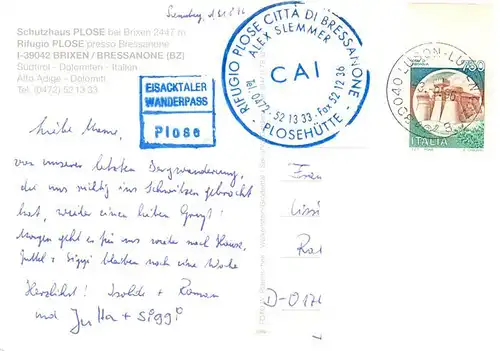 Schutzhaus PLOSE bei Brixen 2447 m
Rifugio PLOSE presso Bressanone
I-39042 BRIXEN / BRESSANONE (BZ)
Südtirol - Dolomiten - Italien
Alto Adige - Dolomiti
Tel. (0472) 52 13 33
EISACKTALER
WANDERPASS
Plose
RIFUGIO PLOSE CITTÀ DI BRESSANONE
ALEX SLEMMER
CAI
Tel. 0472 - 52 13 33 - Fax 52 12 36
- PLOSEHÜTTE -
ITALIA
Liebe Mame,
von unserer letzten Bergwanderung,
die uns richtig ins Schwitzen gebracht
hat, wieder einen lieben Gruß!
Morgen geht es für uns wieder nach Hause,
Jutta + Siggi bleiben noch eine Woche
Herzlichst! Isolde + Roman
und Jutta + Siggi
Frau
D-017